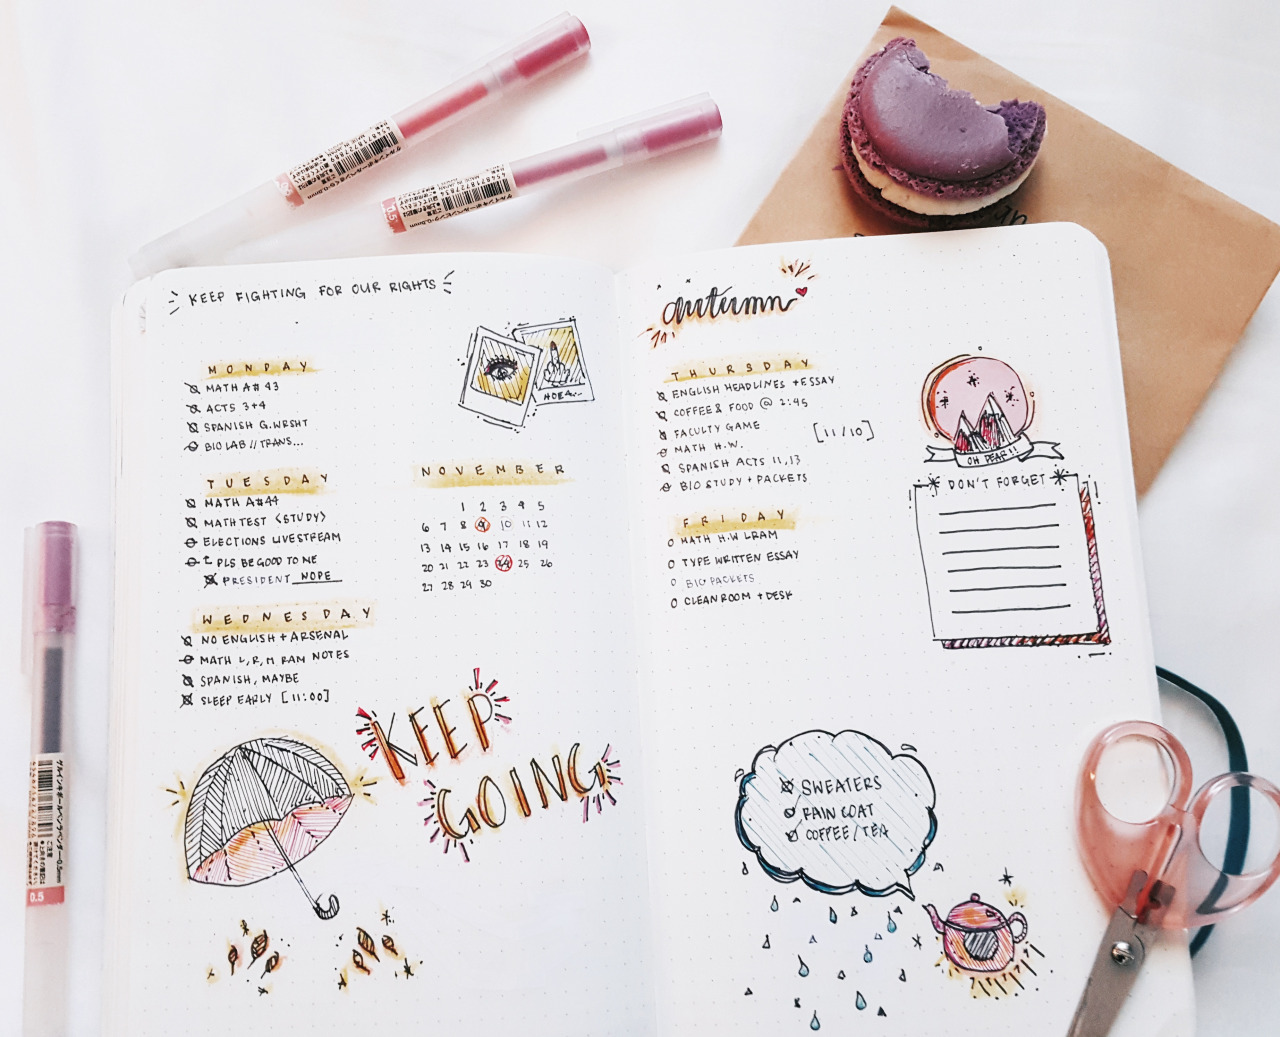 KEEP FIGHTING FOR OUR RIGHTS
MONDAY
MATH A# 43
ACTS 3+4
SPANISH G.WRSHT
BIO LAB // TRANS...
TUESDAY
MATH A#44
MATH TEST <STUDY>
ELECTIONS LIVESTREAM
PLS BE GOOD TO ME
PRESIDENT NOPE
WEDNESDAY
NO ENGLISH + ARSENAL
MATH L, R, M RAM NOTES
SPANISH, MAYBE
SLEEP EARLY [11:00]
NOVEMBER
1 2 3 4 5
6 7 8 9 10 11 12
13 14 15 16 17 18 19
20 21 22 23 24 25 26
27 28 29 30
KEEP
GOING
autumn
THURSDAY
ENGLISH HEADLINES + ESSAY
COFFEE & FOOD @ 2:45
FACULTY GAME
MATH H.W.
SPANISH ACTS 11,13
BIO STUDY + PACKETS
[11/10]
FRIDAY
MATH H.W LRAM
TYPE WRITTEN ESSAY
BIG PACKETS
CLEAN ROOM + DESK
OH DEAR!!
DON'T FORGET
SWEATERS
RAIN COAT
COFFEE/TEA
0.5
0.5